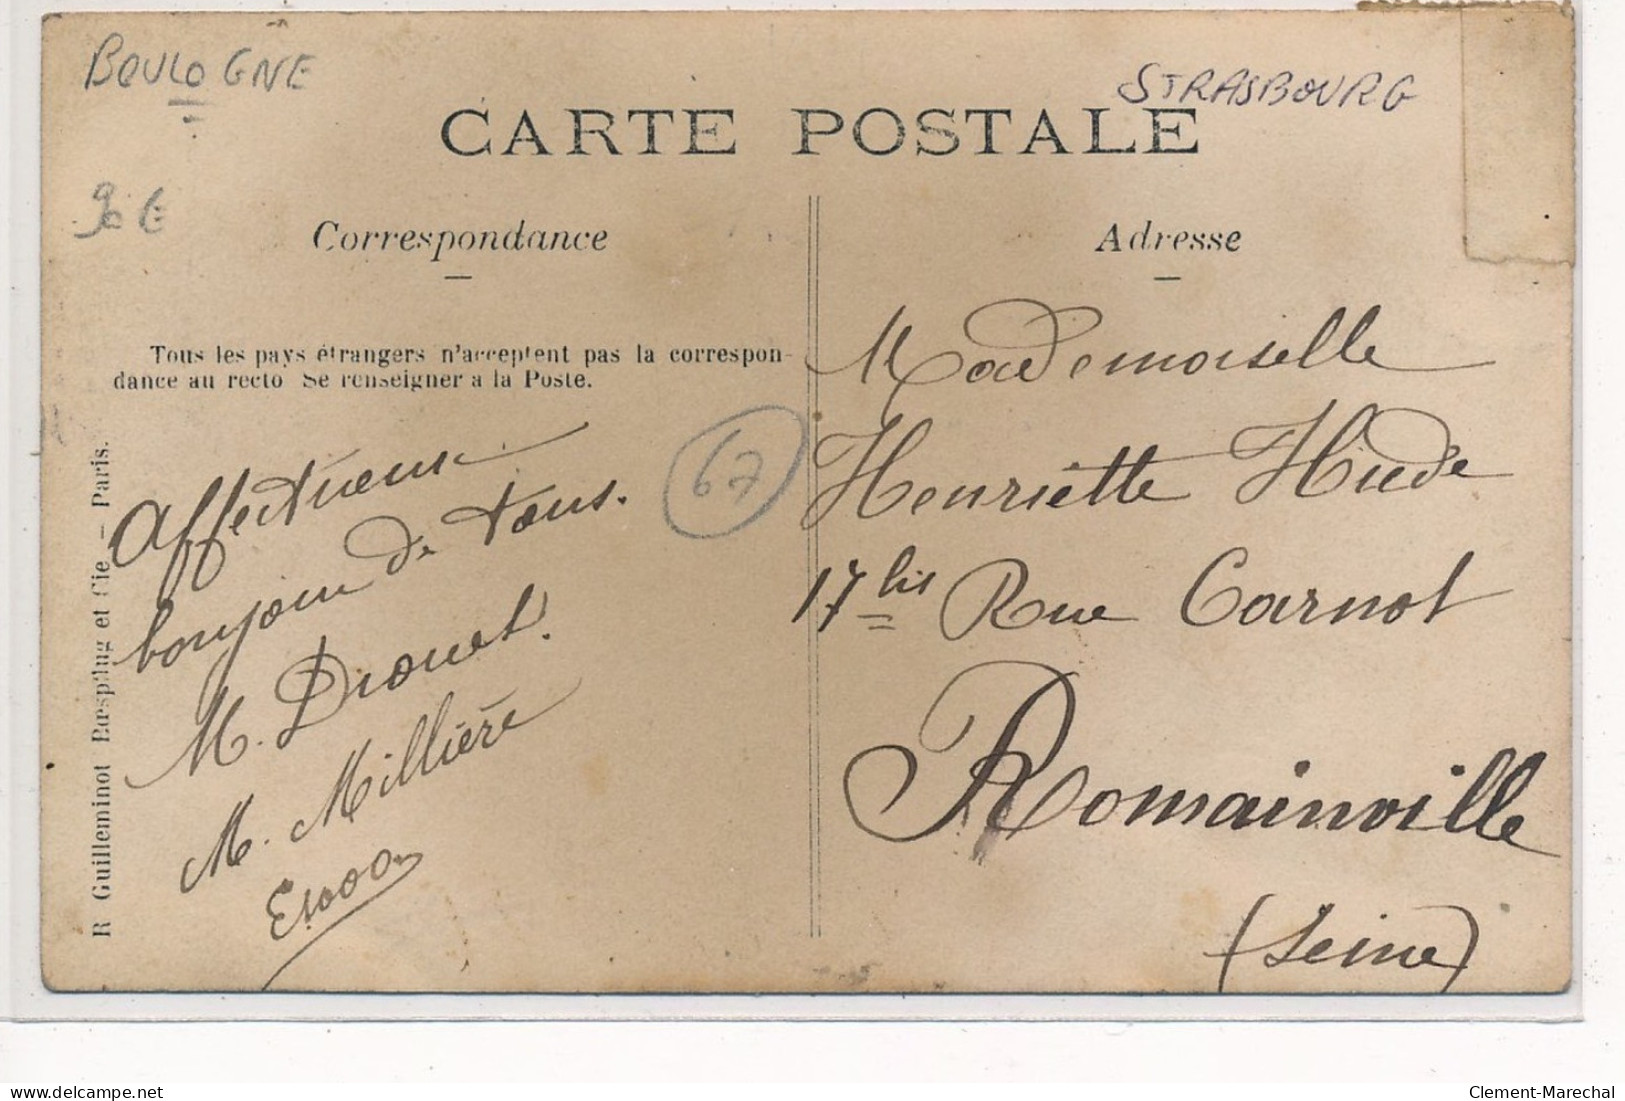 BOULOGNE
STRASBOURG
CARTE POSTALE
90 €
Correspondance
Adresse
Tous les pays étrangers n'acceptent pas la correspon-
dance au recto Se renseigner à la Poste.
67
Affectueux
bonjour de tous.
M. Drouet.
M. Millière
R Guilleminot Bœspflug et Cie. — Paris.
Mademoiselle
Henriette Hude
17 bis Rue Carnot
Romainville
(Seine)
delcampe.net
Clement-Marechal